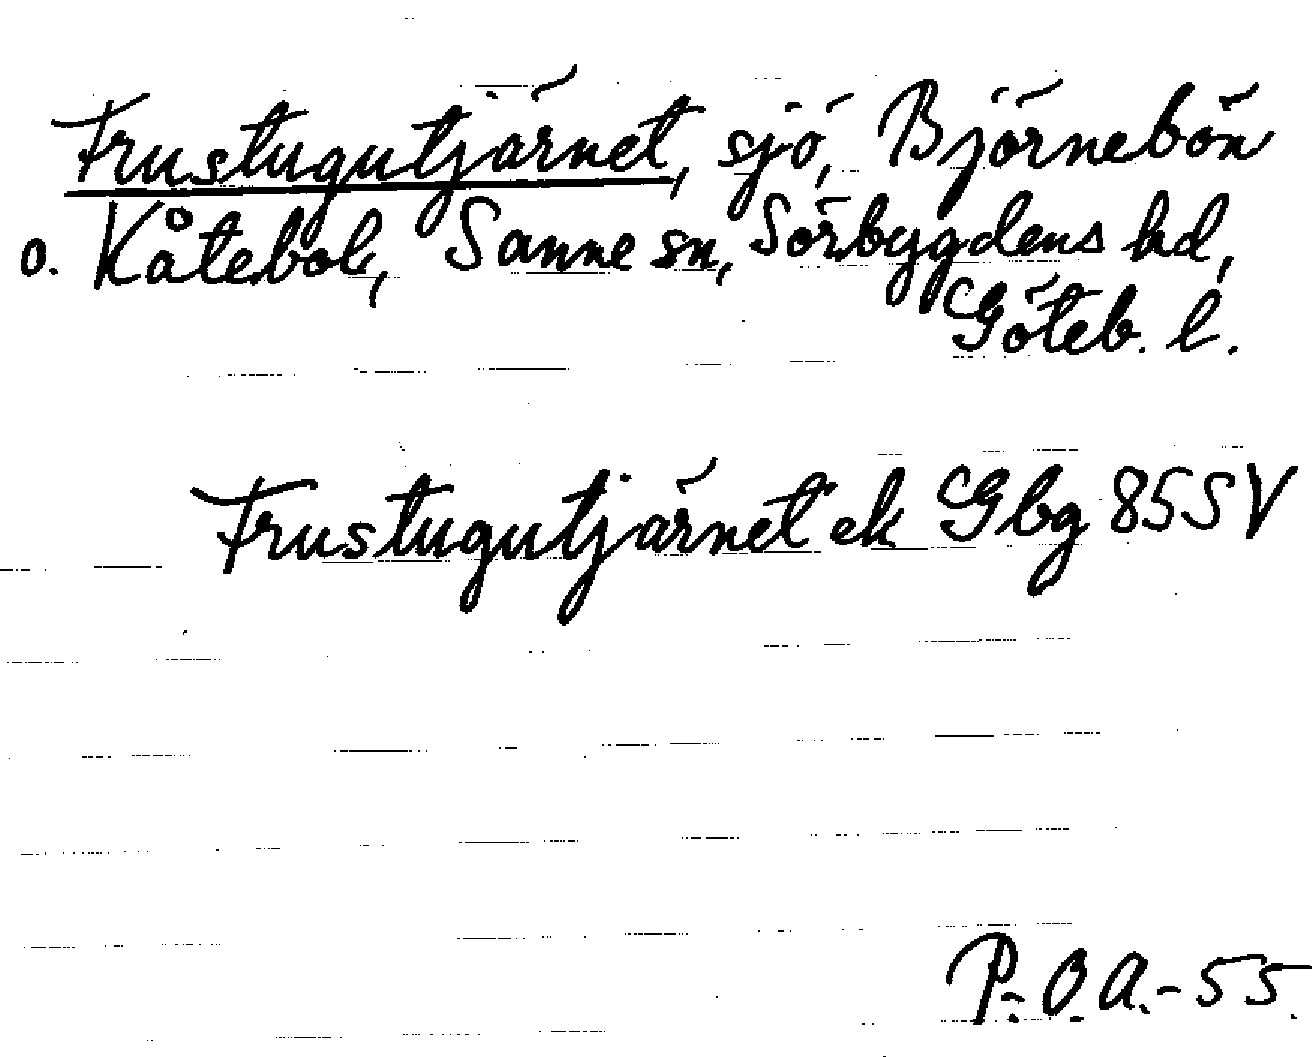 Frustugutjärnet, sjö, Björnebön
o. Kåtebol, Sanne sn, Sörbygdens hd,
Göteb. l.
Frustugutjärnet ek Gbg 85SV
P.-O.A.-55.